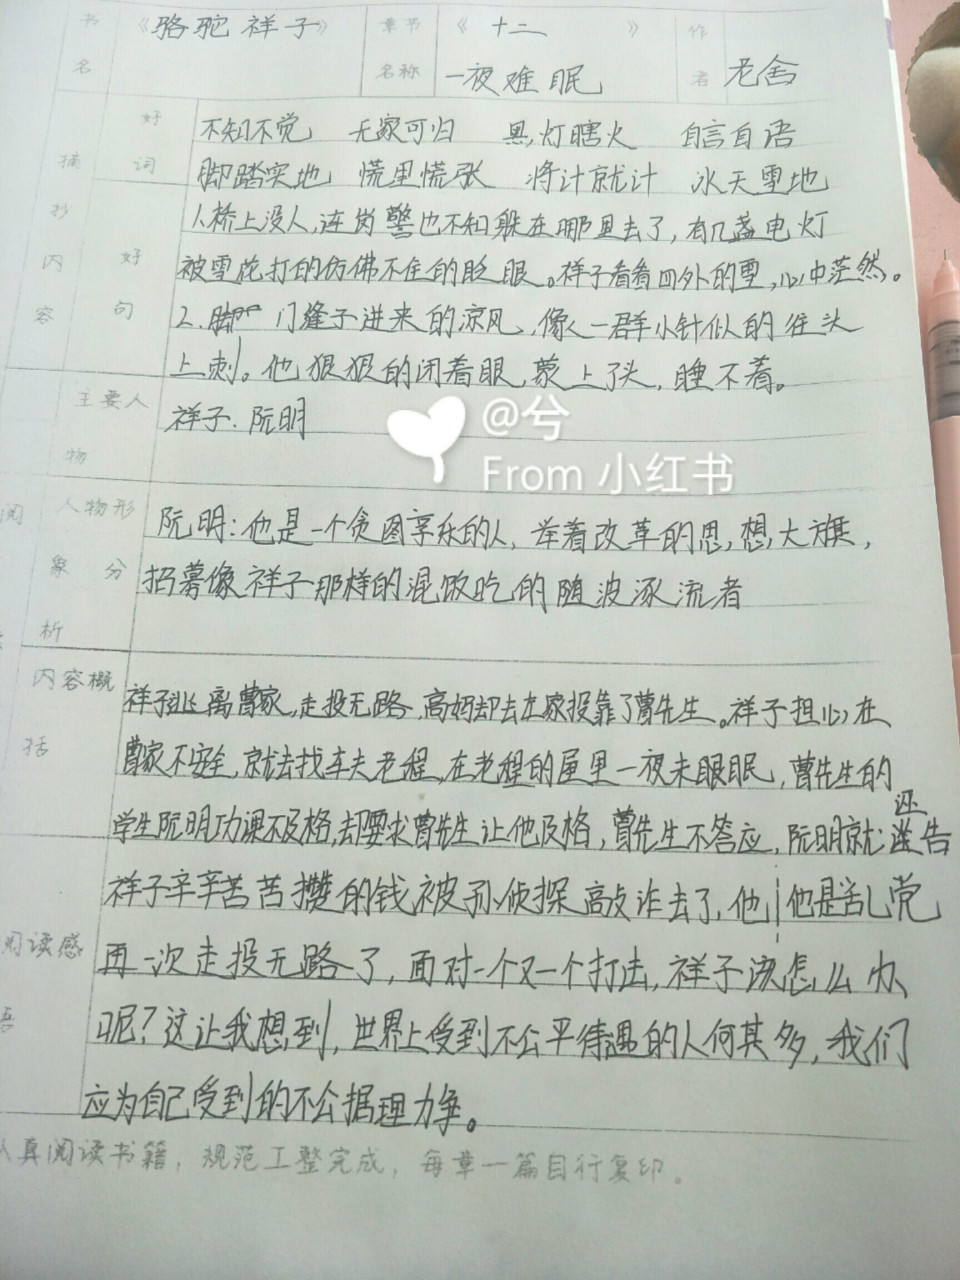 书名 《骆驼祥子》 章节名称 《 十二 》 一夜难眠 作者 老舍
摘抄内容
好词 不知不觉 无家可归 黑灯瞎火 自言自语
脚踏实地 慌里慌张 将计就计 冰天雪地
好句 1、桥上没人,连岗警也不知躲在哪里去了,有几盏电灯
被雪花打的仿佛不住的眨眼。祥子看看四外的雪,心中茫然。
2. 门缝子进来的凉风,像一群小针似的往头
上刺。他狠狠的闭着眼,蒙上了头,睡不着。
主要人物 祥子. 阮明
@兮
From 小红书
人物形象分析 阮明:他是一个贪图享乐的人,举着改革的思想大旗,
招募像祥子那样的混饭吃的随波逐流者
内容概括 祥子逃离曹家,走投无路,高妈却去左家投靠了曹先生。祥子担心在
曹家不安全,就去找车夫老程,在老程的屋里一夜未眼眠,曹先生的
学生阮明功课不及格,却要求曹先生让他及格,曹先生不答应,阮明就诬告
他是乱党
阅读感悟 祥子辛辛苦苦攒的钱被孙侦探敲诈去了,他
再一次走投无路了,面对一个又一个打击,祥子该怎么办
呢?这让我想到,世界上受到不公平待遇的人何其多,我们
应为自己受到的不公据理力争。
认真阅读书籍,规范工整完成,每章一篇自行复印。